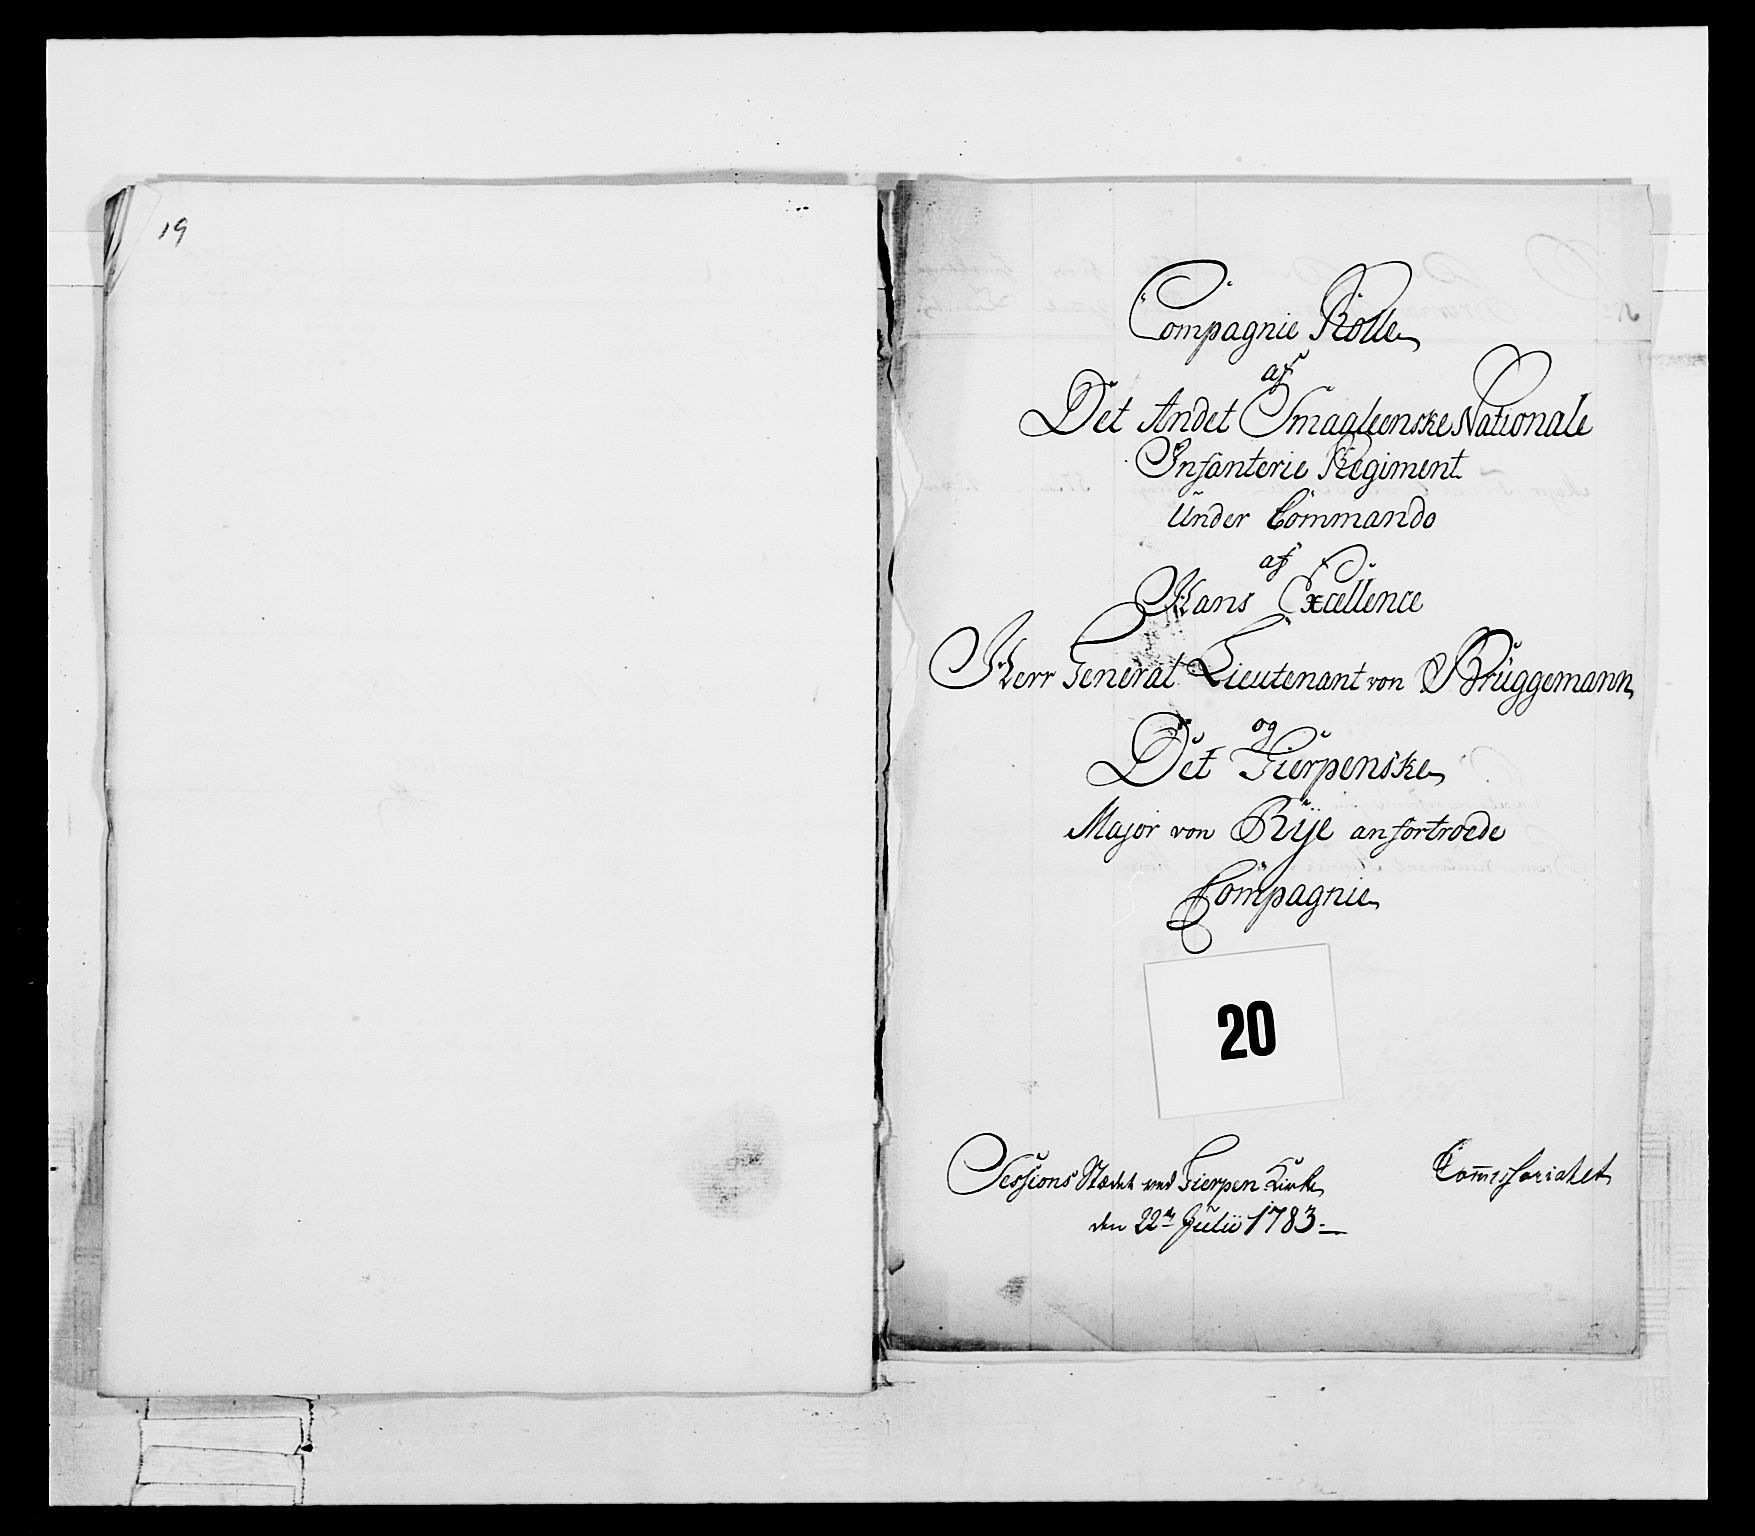 19
Compagnie Rolle
af
Det Andet Smaaleenske Nationale
Infanterie Regiment
Under Commando
af
Hans Excellence
Herr General Lieutenant von Brüggemann
og
Det Gierpenske
Major von Rÿe anfortroede
Compagnie
20
Sessions Stædet ved Gierpen Kirke
den 22de Julii 1783
Commissariatet